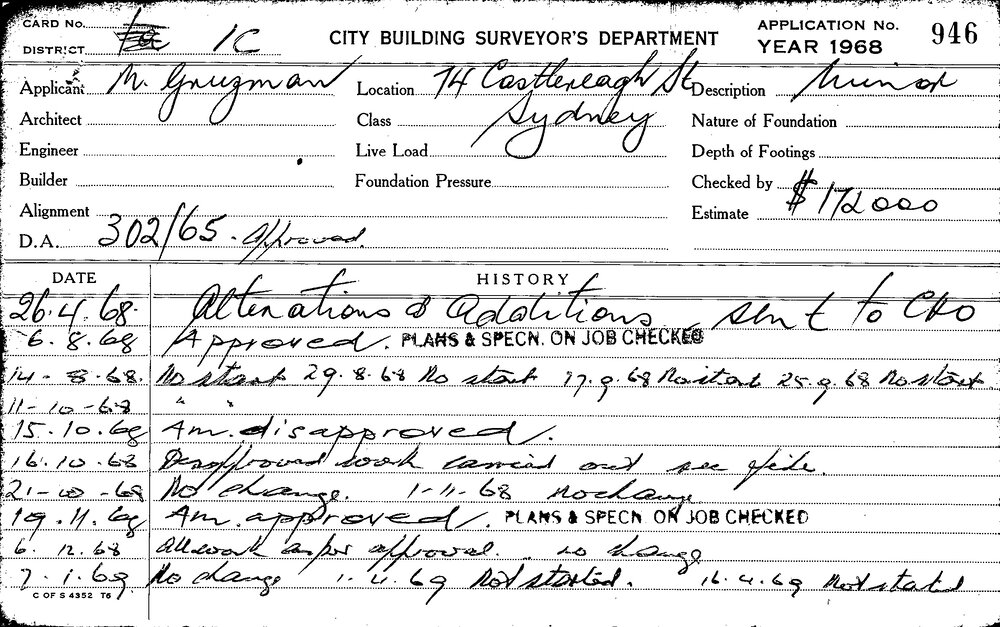 CARD No.
DISTRICT 1C
CITY BUILDING SURVEYOR'S DEPARTMENT
APPLICATION No. 946
YEAR 1968
Applicant N. Gruzman
Location 74 Castlereagh St
Description Minor
Architect
Class Sydney
Nature of Foundation
Engineer
Live Load
Depth of Footings
Builder
Foundation Pressure
Checked by
Alignment
Estimate $172000
D.A. 302/65. Approved.
DATE HISTORY
26.4.68. Alterations & Additions sent to CBO
6.8.68 Approved. PLANS & SPECN. ON JOB CHECKED
14-8-68. No start 29.8.68 No start 17.9.68 No start 25.9.68 No start
11-10-68 " "
15.10.68 Am. disapproved.
16.10.68 Disapproved work carried out see file.
21-10-68 No change. 1-11-68 no change
19.11.68 Am. approved. PLANS & SPECN. ON JOB CHECKED
6.12.68 All work as per approval. no change
7.1.69 No change 1.4.69 Not started. 16.4.69 Not started
C OF S 4352 T6